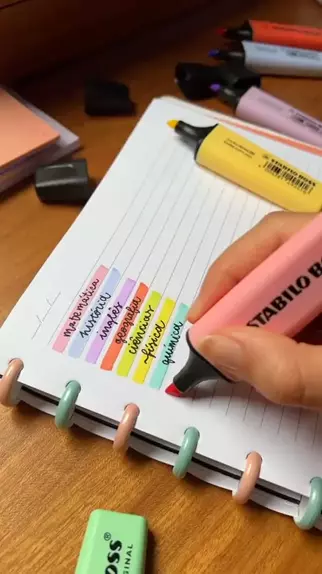 matemática
história
inglês
geografia
ciências
física
química
STABILO BOSS
STABILO B
OSS
INAL